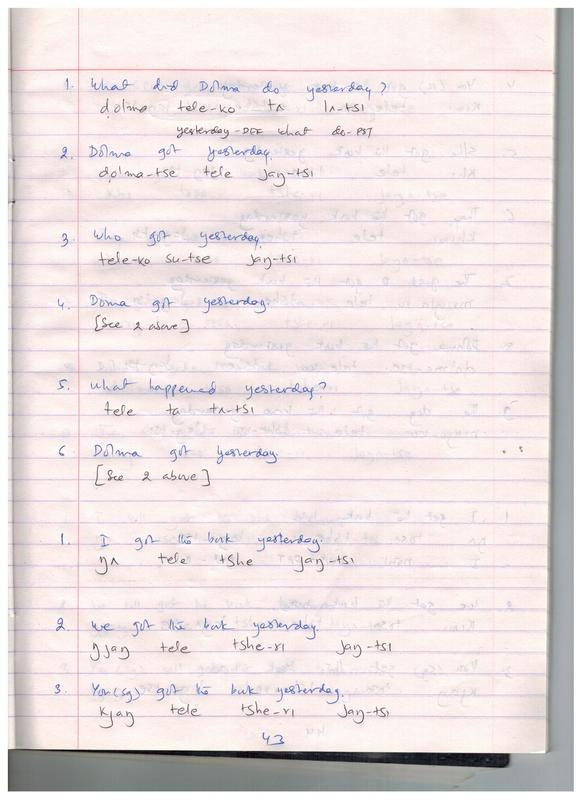 1. What did Dolma do yesterday?
dolma tele-ko tʌ lʌ-tsɪ
yesterday-DEF what do-PST
2. Dolma got yesterday.
dolma-tse tele jaŋ-tsɪ
3. Who got yesterday.
tele-ko su-tse jaŋ-tsɪ
4. Doma got yesterday.
[See 2 above]
5. What happened yesterday?
tele ta tʌ-tsɪ
6 Dolma got yesterday.
[See 2 above]
1. I got the book yesterday.
ŋʌ tele tshe jaŋ-tsɪ
2. We got the book yesterday.
ŋjaŋ tele tshe-rɪ jaŋ-tsɪ
3. You(sg) got the book yesterday.
kjaŋ tele tshe-rɪ jaŋ-tsɪ
43